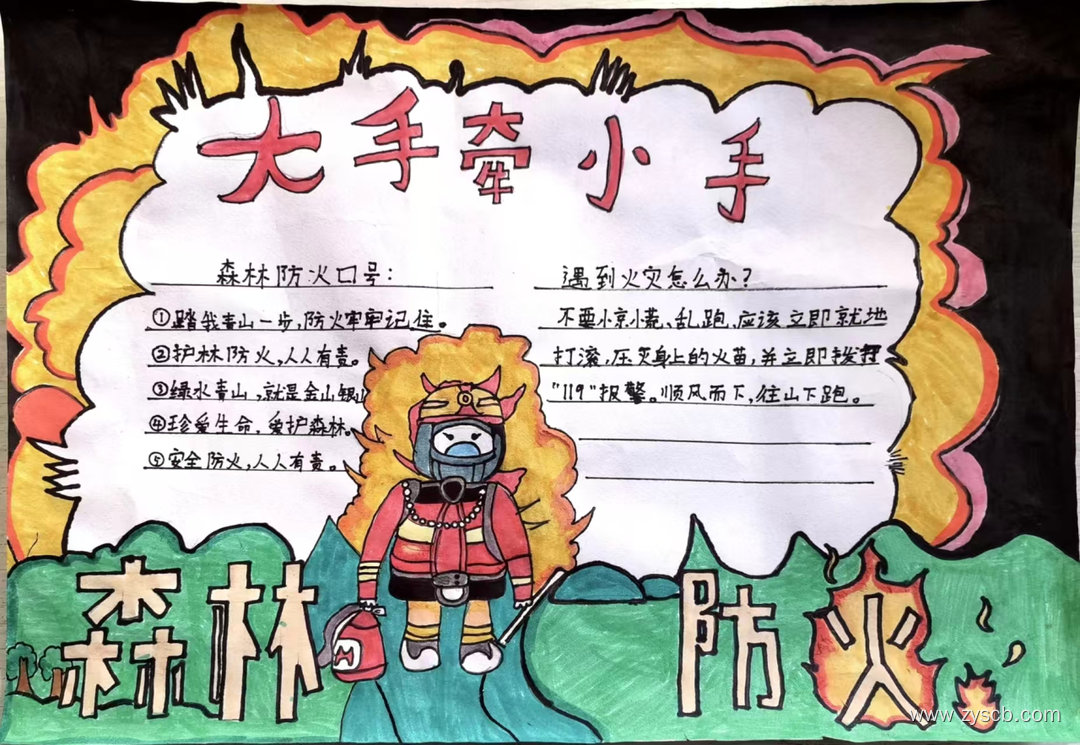 大手牵小手
森林防火口号:
①踏我青山一步,防火牢牢记住。
②护林防火,人人有责。
③绿水青山,就是金山银山
④珍爱生命,爱护森林。
⑤安全防火,人人有责。
遇到火灾怎么办?
不要小惊小慌、乱跑,应该立即就地
打滚,压灭身上的火苗,并立即拨打
"119"报警。顺风而下,往山下跑。
森林
防火
www.zyscb.com